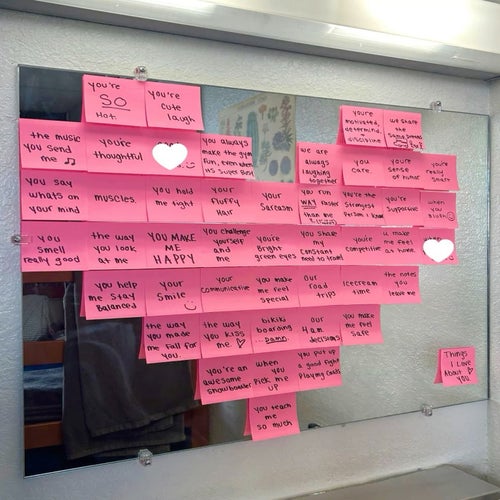 you're
SO
Hot.
you're
cute
laugh
you're
motivated,
determind, +
discipline
we share
the
same
the music
you send
me ♫
you're
thoughtful
you always
make the gym
fun, even when
its super Busy
we are
always
laughing
together
you
care.
your
sense
of humor
you're
really
smart
you say
whats on
your mind
muscles.
you hold
me tight
your
fluffy
Hair
your
Sarcasm
you run
WAY faster
than me
you're the
strongest
Person I know
you're
supportive
when
you
blush
you
smell
really good
the way
you look
at me
YOU MAKE
ME
HAPPY
you challenge
yourself
and me
you're
Bright
green eyes
you share
my
constant
need to travel
you're
competitive
u make
me feel
at home
you help
me stay
Balanced
your
smile
your
communicative
you make
me feel
special
Our
road
trips
icecream
time
the notes
you
leave me
the way
you made
me fall for
you.
the way
you kiss
me ♡
bikiki
boarding
...damn.
our
4am
decisions
you make
me feel
safe
you're an
awesome
snowboarder
when
you
Pick me
up
you put up
a good fight
Playing cards
you teach
me
so much
Things
I Love
About
you